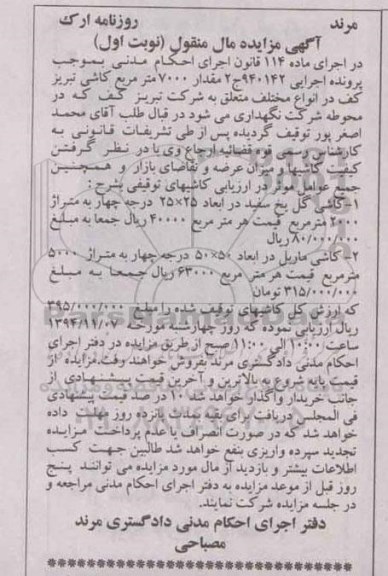 مرند روزنامه ارک
آگهی مزایده مال منقول (نوبت اول)
در اجرای ماده ۱۱۴ قانون اجرای احکام مدنی بموجب
پرونده اجرایی ۹۴۰۱۴۲ج۲ مقدار ۷۰۰۰ متر مربع کاشی تبریز
کف در انواع مختلف متعلق به شرکت تبریز کف که در
محوطه شرکت نگهداری می شود در قبال طلب آقای محمد
اصغر پور توقیف گردیده پس از طی تشریفات قانونی به
کارشناس رسمی قوه قضائیه ارجاع وی با در نظر گرفتن
کیفیت کاشیها و میزان عرضه و تقاضای بازار و همچنین
جمیع عوامل موثر در ارزیابی کاشیهای توقیفی بشرح :
۱-کاشی گل یخ سفید در ابعاد ۲۵×۲۵ درجه چهار به متراژ
۲۰۰۰ مترمربع قیمت هر متر مربع ۴۰۰۰۰ ریال جمعا به مبلغ
۸۰/۰۰۰/۰۰۰ ریال
۲- کاشی ماربل در ابعاد ۵۰×۵۰ درجه چهار به متراژ ۵۰۰۰
مترمربع قیمت هر متر مربع ۶۳۰۰۰ ریال جمعا به مبلغ
۳۱۵/۰۰۰/۰۰۰ تومان
که ارزش کل کاشیهای توقیف شده را مبلغ ۳۹۵/۰۰۰/۰۰۰
ریال ارزیابی نموده که روز چهارشنبه مورخه ۱۳۹۴/۱۱/۰۷
ساعت ۱۰:۰۰ الی ۱۱:۰۰ صبح از طریق مزایده در دفتر اجرای
احکام مدنی دادگستری مرند بفروش خواهند رفت.مزایده از
قیمت پایه شروع به بالاترین و آخرین قیمت پیشنهادی از
جانب خریدار واگذار خواهد شد ۱۰ در صد قیمت پیشنهادی
فی المجلس دریافت برای بقیه بمدت پانزده روز مهلت داده
خواهد شد که در صورت انصراف یا عدم پرداخت مزایده
تجدید سپرده واریزی بنفع خواهد شد طالبین جهت کسب
اطلاعات بیشتر و بازدید از مال مورد مزایده می توانند پنج
روز قبل از موعد مزایده به دفتر اجرای احکام مدنی مراجعه و
در جلسه مزایده شرکت نمایند.
دفتر اجرای احکام مدنی دادگستری مرند
مصباحی